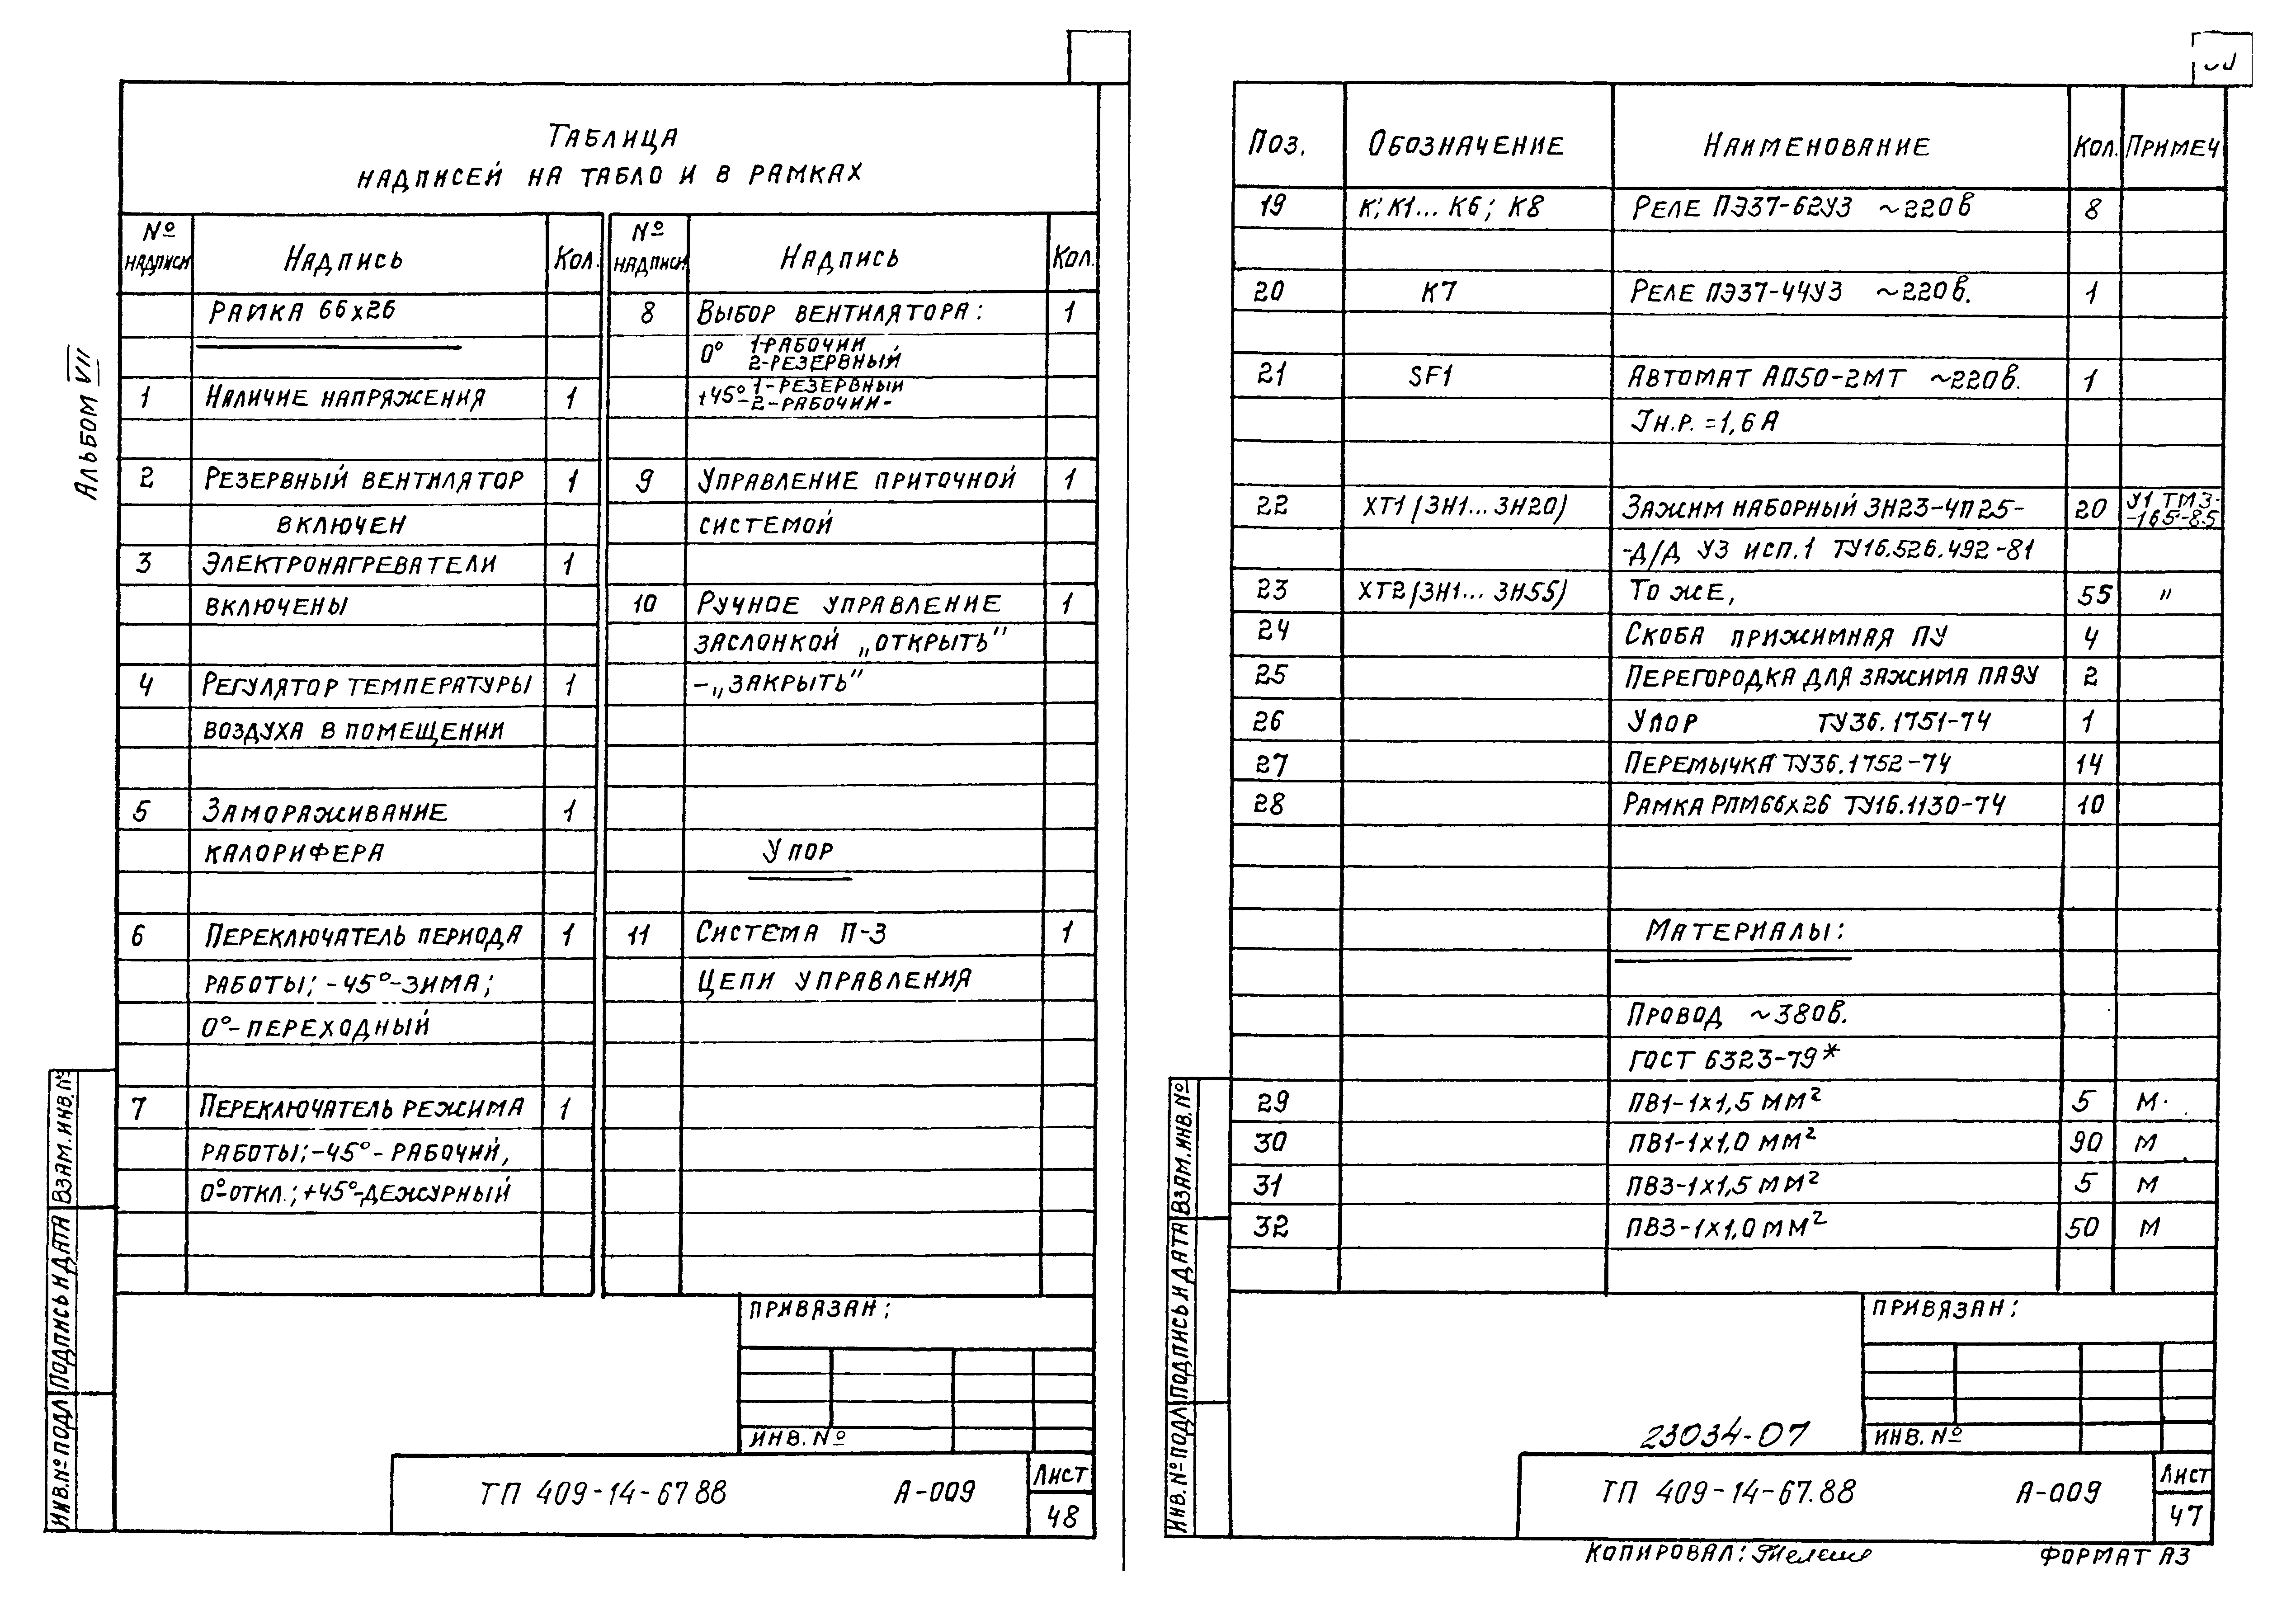 Альбом VII
Таблица
надписей на табло и в рамках
№ надписи Надпись Кол.
Рамка 66х26
1 Наличие напряжения 1
2 Резервный вентилятор 1
включен
3 Электронагреватели 1
включены
4 Регулятор температуры 1
воздуха в помещении
5 Замораживание 1
калорифера
6 Переключатель периода 1
работы; -45°-зима;
0°-переходный
7 Переключатель режима 1
работы; -45°- рабочий,
0°-откл.; +45°-дежурный
№ надписи Надпись Кол.
8 Выбор вентилятора: 1
0° 1-рабочий
2-резервный
+45°- 1-резервный
2-рабочий-
9 Управление приточной 1
системой
10 Ручное управление 1
заслонкой „открыть"
-„закрыть"
Упор
11 Система П-3 1
Цепи управления
Привязан:
Инв. №
ТП 409-14-67 88 А-009
Лист
48
Взам. инв. №
Подпись и дата
Инв. № подл
Поз. Обозначение Наименование Кол. Примеч
19 К; К1... К6; К8 Реле ПЭ37-62У3 ~220в 8
20 К7 Реле ПЭ37-44У3 ~220в. 1
21 SF1 Автомат АП50-2МТ ~220в. 1
Iн.р. =1,6А
22 ХТ1 (ЗН1... ЗН20) Зажим наборный ЗН23-4П25- 20 У1 ТМ3-
-165-85
-Д/Д У3 исп.1 ТУ16.526.492-81
23 ХТ2 (ЗН1... ЗН55) То же, 55 "
24 Скоба прижимная ПУ 4
25 Перегородка для зажима ПА9У 2
26 Упор ТУ36.1751-74 1
27 Перемычка ТУ36.1752-74 14
28 Рамка РПМ66х26 ТУ16.1130-74 10
Материалы:
Провод ~380в.
ГОСТ 6323-79*
29 ПВ1-1х1,5 мм² 5 м.
30 ПВ1-1х1,0 мм² 90 м
31 ПВ3-1х1,5 мм² 5 м
32 ПВ3-1х1,0 мм² 50 м
Привязан:
Инв. №
23034-07
ТП 409-14-67.88 А-009
Лист
47
Взам. инв. №
Подпись и дата
Инв. № подл
Копировал:
Формат А3